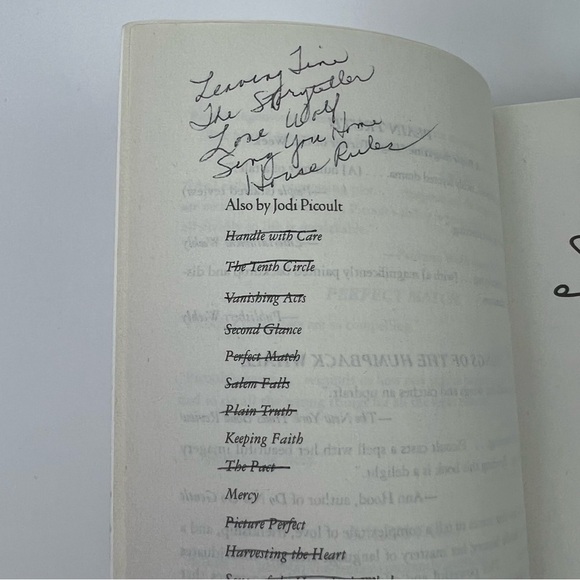 Leaving Time
The Storyteller
Lone Wolf
Sing You Home
House Rules
Also by Jodi Picoult
Handle with Care
The Tenth Circle
Vanishing Acts
Second Glance
Perfect Match
Salem Falls
Plain Truth
Keeping Faith
The Pact
Mercy
Picture Perfect
Harvesting the Heart